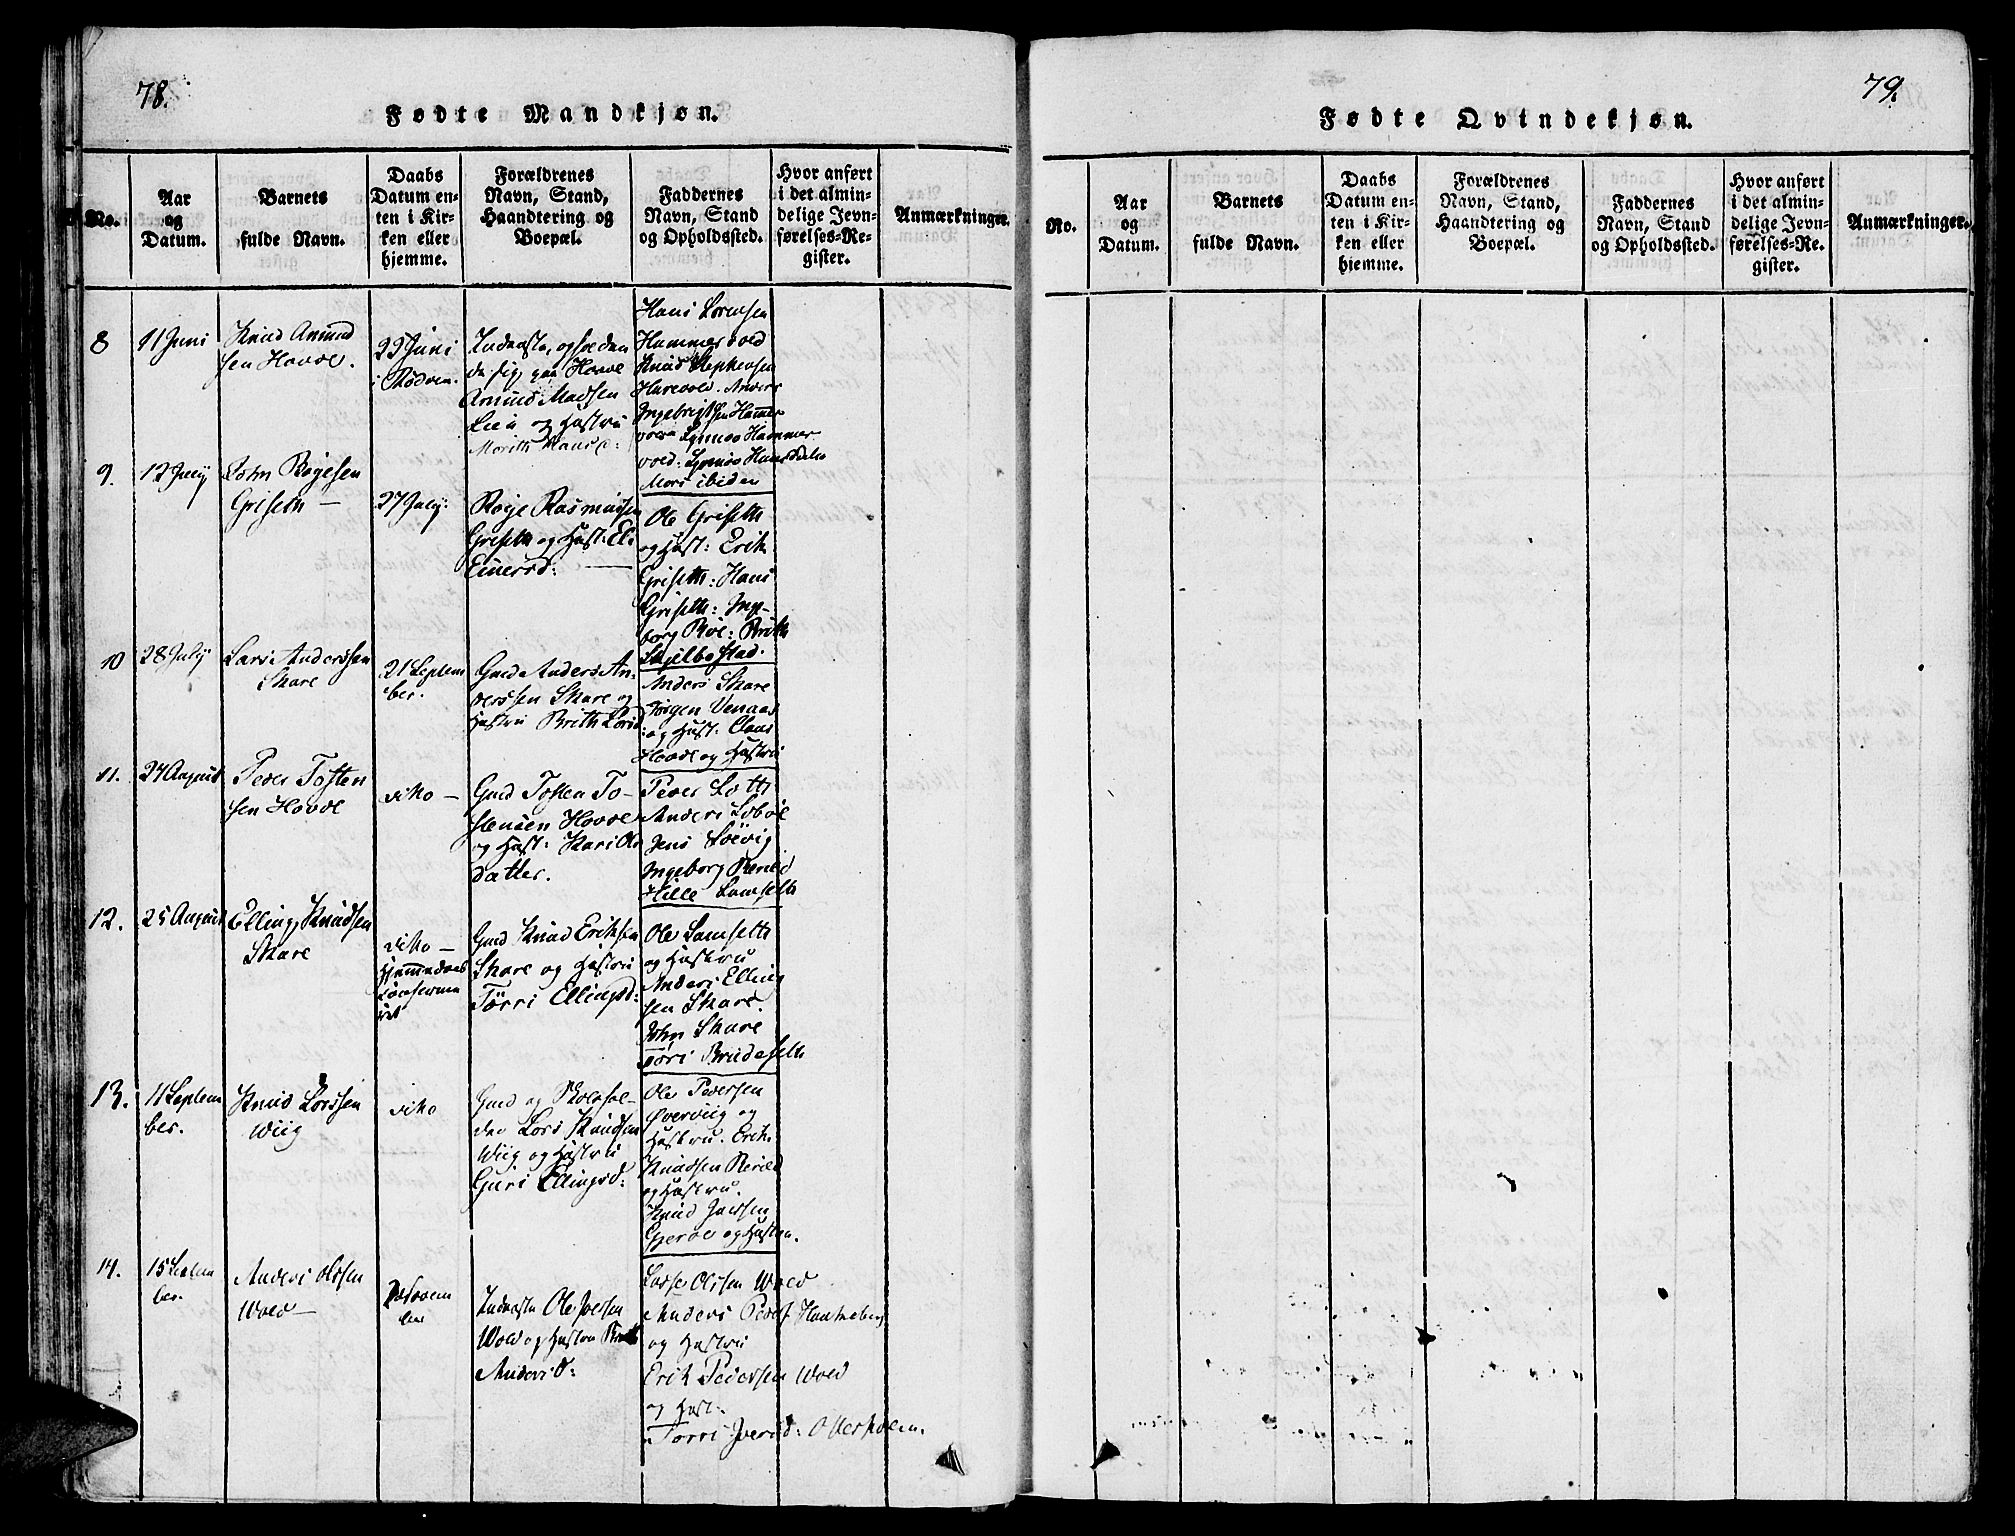 78.
Fødte Mandkjøn.
No.
Aar
og
Datum.
Barnets
fulde Navn.
Daabs
Datum en=
ten i Kir=
ken eller
hjemme.
Forældrenes
Navn, Stand,
Haandtering og
Boepæl.
Faddernes
Navn, Stand
og Opholdssted.
Hvor anført
i det almin=
delige Jevn=
førelses=Re=
gister.
Anmærkninger.
8
11 Juni
Knud Amund
sen Hovde.
22 Juni
i Rødven.
Inderste, opholden
de sig paa Hovde
Amund Madsen
Lien og Hustru
Marith Hansd:
Hans Lorensen
Hammervold
Knud Stephensen
Harevold. Anders
Ingebrigtsen Hammer
vold Synnøv Hammer
vold: Synnøv Hansdatter
Mors ibiden
9.
12 July
John Rogesen
Griseth —
27 July:
Roge Rasmussen
Griseth og Hust: Eli
Einersd: —
Ole Griseth
og Hust: Erik
Griseth: Hans
Griseth: Inge-
borg Roe: Brith
Skjelbostad.
10
28 July
Lars Anderssen
Skare
21 Septem
ber.
Gmd Anders An-
derssen Skare og
Hustru Brith Larsd
Anders Skare
Jørgen Venaas
og Hust: Claus
Hovde og Hustru
11.
24 August
Peder Tosten
sen Hovde
dito —
Gmd Tosten To-
stensen Hovde
og Hust: Kari Ols
datter.
Peder Sotth
Anders Sobøe
Jens Soevig
Ingeborg Reneld
Hille Samseth
12.
25 August
Elling Knudsen
Skare
dito —
Hjemmedaab
Confirme
ret
Gmd Knud Eriksen
Skare og Hustru
Tørri Ellingsd:
Ole Samseth
og Hustru
Anders Elling
sen Skare.
John Skare
Tøri Brudeseth
13.
11 Septem
ber.
Knud Larssen
Wiig
dito
Gmd og
den Lars Knudsen
Wiig og Hustru
Guri Ellingsd:
Ole Pedersen
Øverviig og
Hustru. Erik
Knudsen Reneld
og Hustru.
Knud
Gjerde og Hustru.
14.
15 Septem
ber.
Anders Olssen
Wold —
Novem
ber
Inderste Ole Iversen
Wold og Hustru Brith
Andersd:
Lasse Olssen Wold
Anders Peders Hammeberg
og Hustru
Erik Pederssen Wold
og Hust:
Tørri Iversd: Otterholm.
79.
Fødte Qvindekjøn.
No.
Aar
og
Datum.
Barnets
fulde Navn.
Daabs
Datum en=
ten i Kir=
ken eller
hjemme.
Forældrenes
Navn, Stand,
Haandtering og
Boepæl.
Faddernes
Navn, Stand
og Opholdssted.
Hvor anført
i det almin=
delige Jevn=
førelses=Re=
gister.
Anmærkninger.